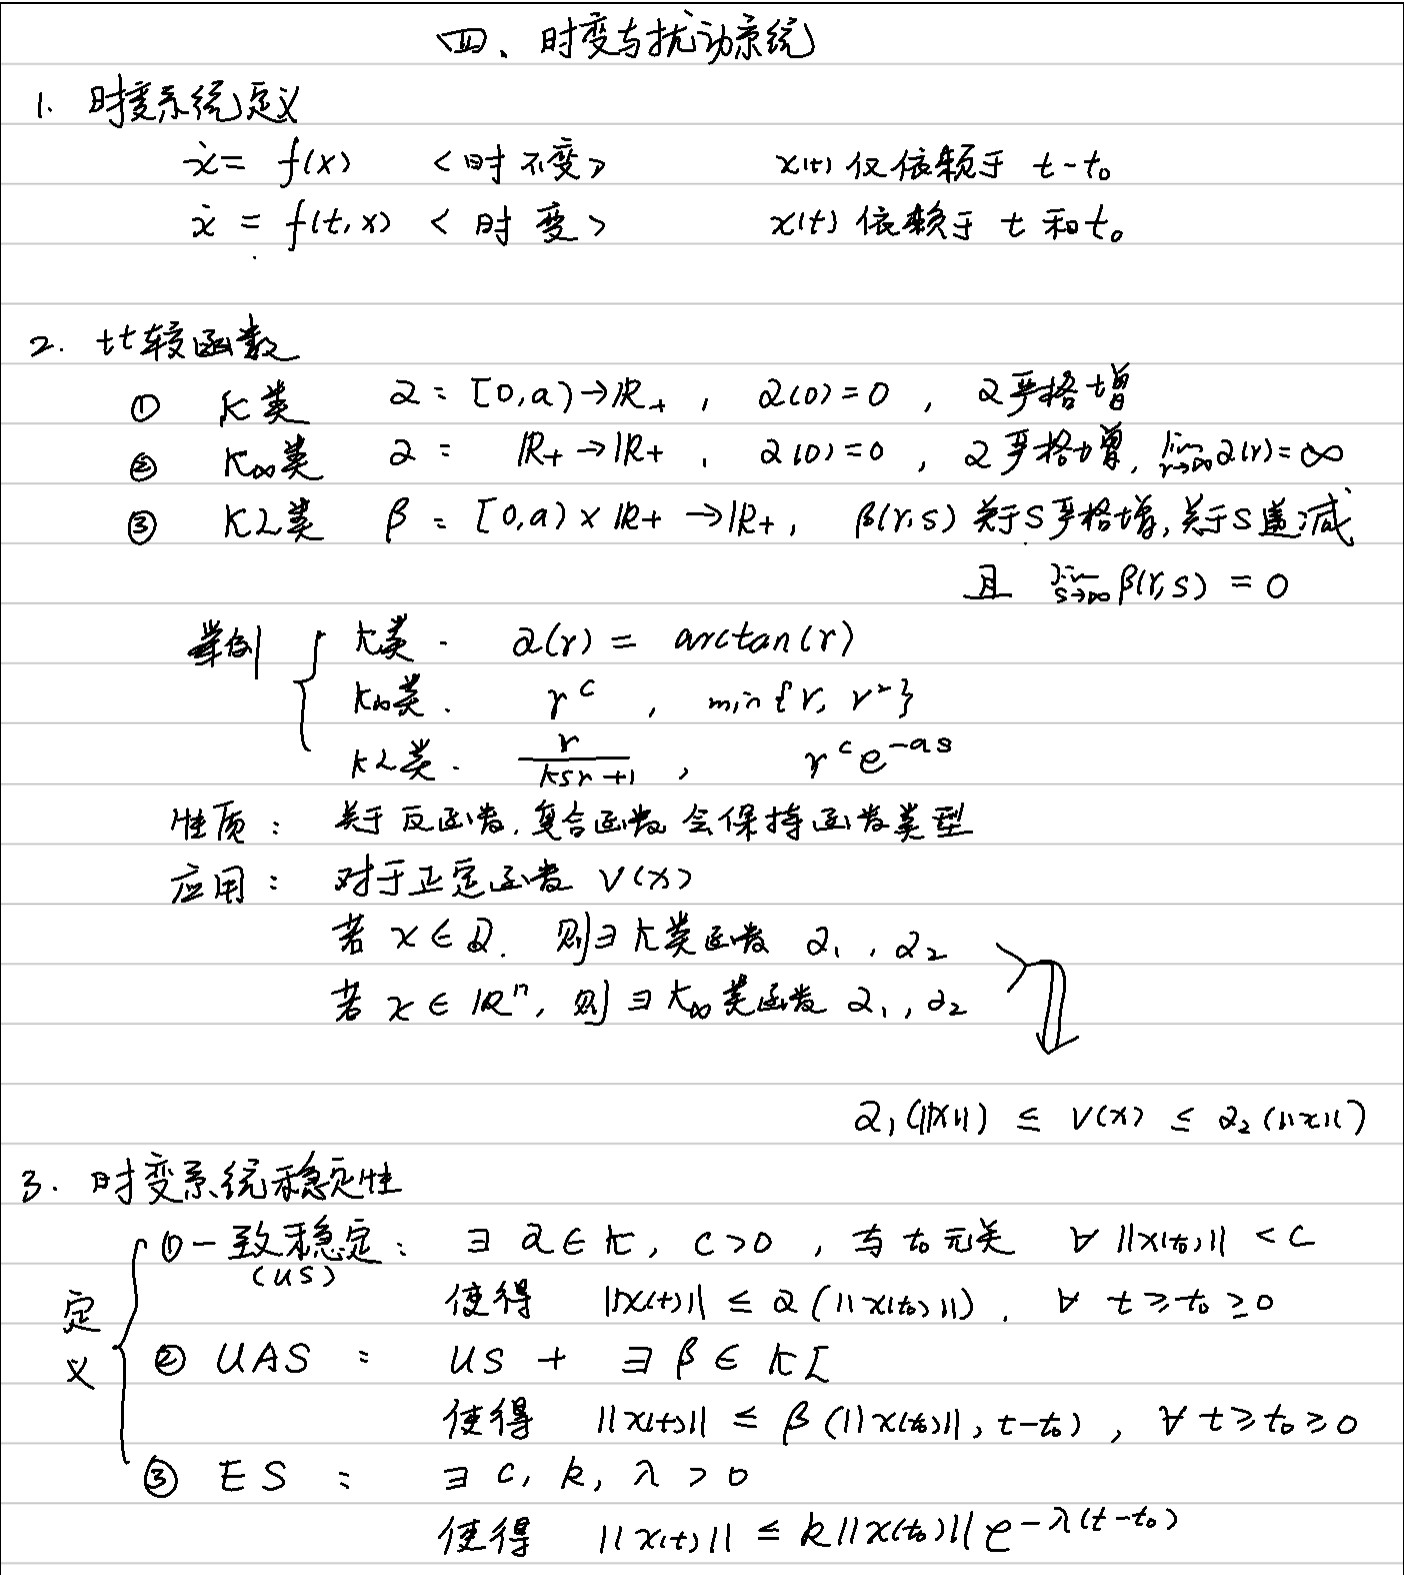 四、时变与扰动系统
1. 时变系统定义
ẋ = f(x) <时不变> x(t) 仅依赖于 t-t₀
ẋ = f(t,x) <时变> x(t) 依赖于 t 和 t₀
2. 比较函数
① K类 α: [0,a)→ℝ₊, α(0)=0, α严格增
② K∞类 α: ℝ₊→ℝ₊, α(0)=0, α严格增, lim_{r→∞} α(r)=∞
③ KL类 β: [0,a)×ℝ₊→ℝ₊, β(r,s) 关于S严格增, 关于S递减
且 lim_{s→∞} β(r,s) = 0
举例 { K类. α(r) = arctan(r)
K∞类. r^c, min{r, r²}
KL类. r/(ksr+1), r^c e^{-as}
性质: 关于反函数, 复合函数会保持函数类型
应用: 对于正定函数 V(x)
若 x∈D. 则∃K类函数 α₁, α₂
若 x∈ℝⁿ, 则∃K∞类函数 α₁, α₂
α₁(||x||) ≤ V(x) ≤ α₂(||x||)
3. 时变系统稳定性
定义 { ①一致稳定: ∃ α∈K, c>0, 与 t₀ 无关 ∀ ||x(t₀)|| < c
(US)
使得 ||x(t)|| ≤ α(||x(t₀)||), ∀ t≥t₀≥0
② UAS: US + ∃ β∈KL
使得 ||x(t)|| ≤ β(||x(t₀)||, t-t₀), ∀ t≥t₀≥0
③ ES: ∃ c, k, λ > 0
使得 ||x(t)|| ≤ k||x(t₀)|| e^{-λ(t-t₀)}